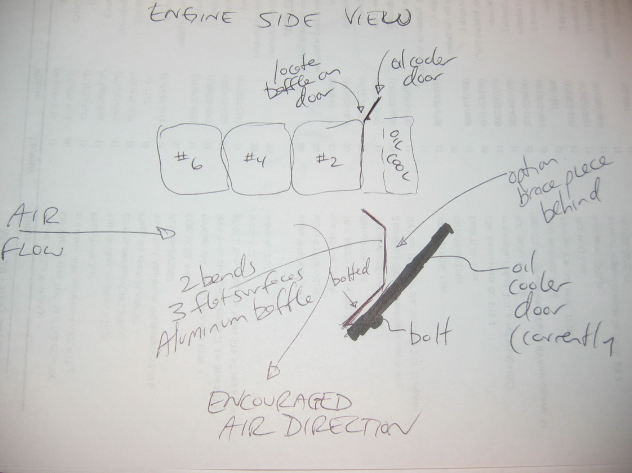 ENGINE SIDE VIEW
locate
baffle on
door
oil cooler
door
#6
#4
#2
OIL
COOL
option
brace piece
behind
AIR
FLOW
2 bends
3 flat surfaces
Aluminum baffle
bolted
oil
cooler
door
(currently
bolt
ENCOURAGED
AIR DIRECTION